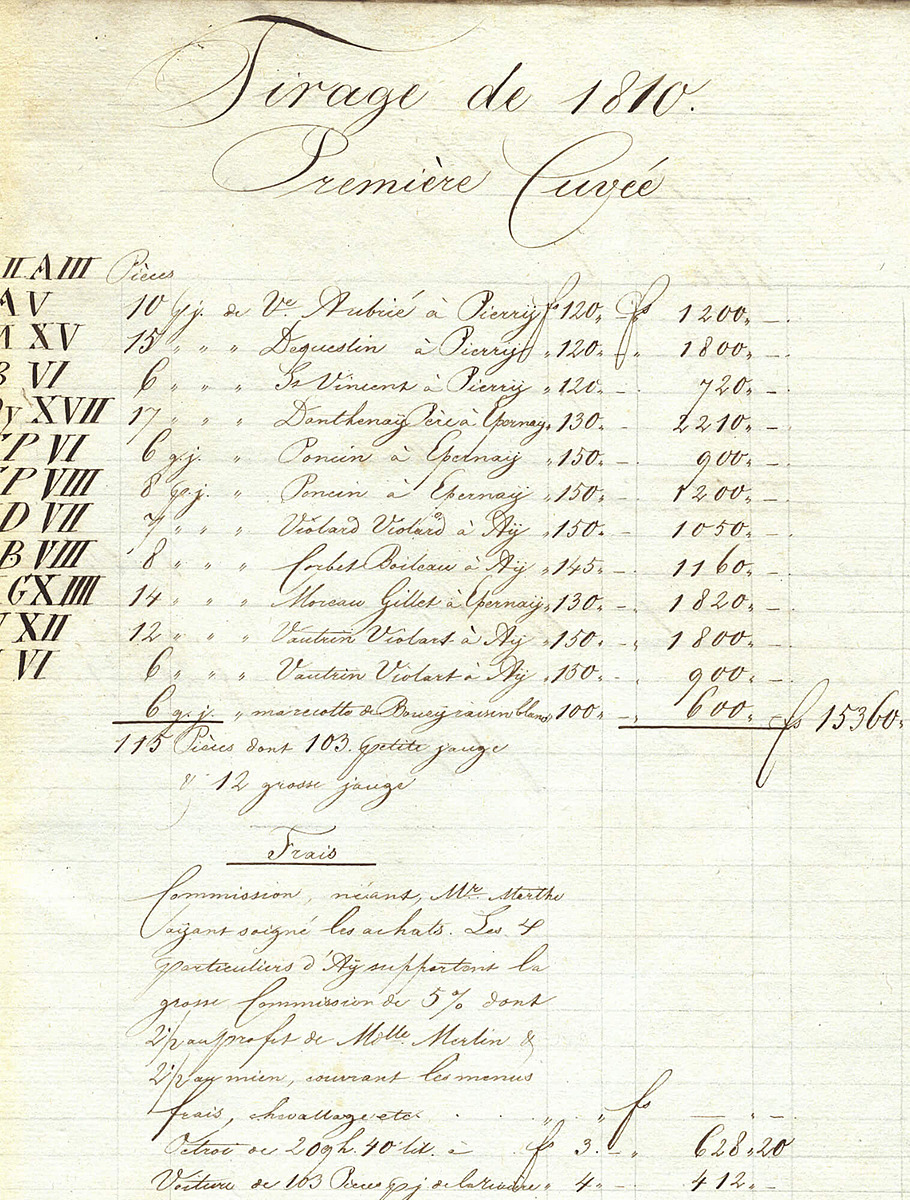 Tirage de 1810.
Première Cuvée
II A III Pièces
A V 10 p.j. de Ve. Aubrié à Pierry fs 120 " fs 1200 " -.
XV 15 " " " Dequestin à Pierry " 120 " - " 1800 " -.
B VI 6 " " " St Vincent à Pierry " 120 - 720 " -.
y XVII 17 " " " Danthenaÿ Père à Epernay " 130 " - 2210 " -.
P VI 6 g.j. " Poncin à Epernaÿ " 150 " - 900 " -.
P VIII 8 p.j. " Poncin à Epernaÿ " 150 " - 1200 " -.
D VII 7 " " " Violard Violard à Aÿ " 150 " - 1050 " -.
B VIII 8 " " " Corbet Boileau à Aÿ " 145 " - 1160 " -.
G XIIII 14 " " " Moreau Gillet à Epernaÿ " 130 " - 1820 " -.
XII 12 " " " Vautrin Violart à Aÿ " 150 " - " 1800 " -.
VI 6 " " " Vautrin Violart à Aÿ " 150 " - 900 " -.
6 g.j. " de Bouzy raisin blanc " 100 " - " 600 " - fs 15360 "
115 Pièces dont 103 petite jauge
& 12 grosse jauge
Frais
Commission, néant, Mr. Merthe
aÿant soigné les achats. Les 4
particuliers d'Aÿ supportent la
grosse Commission de 5% dont
2½ au profit de Mdlle. Merlin &
2½ au mien, couvrant les menus
frais, etc. " " fs - " -.
Octroi de 209h. 40 lit. à fs 3. - " 628 " 20
Voiture de 103 Pièces p.j. de la rivière " 4 " - 412 " -